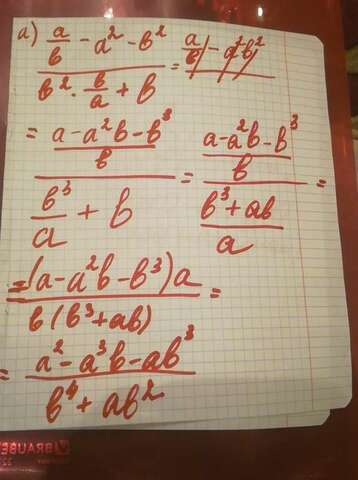 а) (a/b - a² - b²)/(b² · b/a + b) = a/b - a²b²
= ((a - a²b - b³)/b)/(b³/a + b) = ((a - a²b - b³)/b)/((b³ + ab)/a) =
= (a - a²b - b³)a/(b(b³ + ab)) =
= (a² - a³b - ab³)/(b⁴ + ab²)
BRAUBE